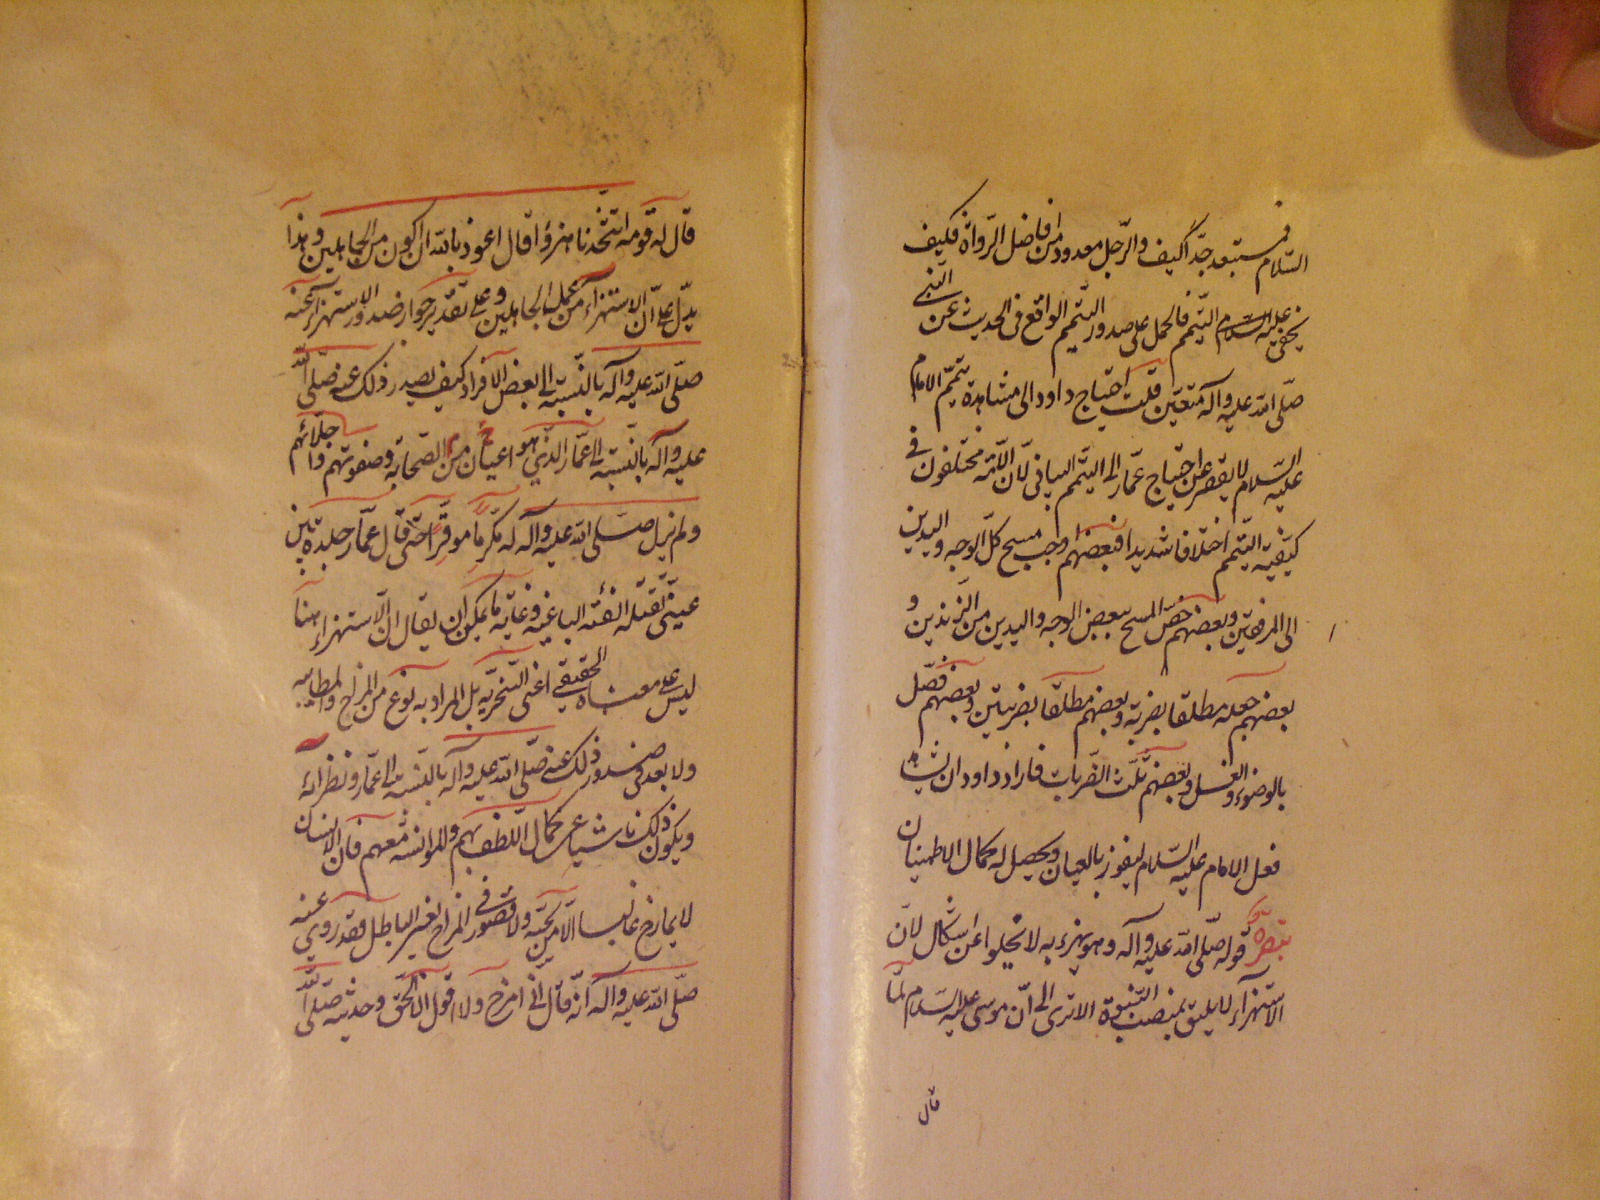 السّلام فمستبعد جدّا كيف والرّجل معدود من افاضل الرّواة فكيف
يخفى عليه السلام التيمّم فالحمل على صدور التيمم الواقع فى الحديث عن النّبى
صلّى الله عليه وآله متعيّن قلت احتياج داود الى مشاهدة تيمّم الامام
عليه السّلام لا يقصر عن احتياج عمّار الى التيمّم البيانى لأنّ الأمّة مختلفون فى
كيفيّة التيمّم اختلافا شديدا فبعضهم اوجب مسح كلّ الوجه واليدين
الى المرفقين وبعضهم خصّ المسح ببعض الوجه واليدين من الزندين و
بعضهم جعله مطلقا بضربة وبعضهم مطلقا بضربتين وبعضهم فصّل
بالوضوء والغسل وبعضهم ثلّث الضّربات فاراد داود ان يشاهد
فعل الامام عليه السّلام ليفوز بالعيان ويحصل له كمال الاطمينان
تبصرة قوله صلّى الله عليه وآله وهو يهزء به لا يخلوا عن اشكال لأنّ
الاستهزآء لا يليق بمنصب النّبوّة الا ترى الى انّ موسى عليه السّلام لمّا
قال
قال له قومه اتتّخذنا هزؤا قال اعوذ بالله ان اكون من الجاهلين وهذا
يدلّ على أنّ الاستهزآء من عمل الجاهلين وعلى تقدير جواز صدور الاستهزاء عنه
صلّى الله عليه وآله بالنّسبة الى بعض الافراد كيف يصدر ذلك عنه صلّى الله
عليه وآله بالنّسبة الى عمّار الّذى هو من اعيان الصّحابة وصفوتهم واجلّائهم
ولم يزل صلّى الله عليه وآله له مكرما موقّرا حتّى قال عمّار جلدة بين
عينىّ تقتله الفئة الباغية وغاية ما يمكن ان يقال انّ الاستهزاء هنا
ليس على معناه الحقيقى اعنى السّخريّة بل المراد به نوع من المزاح والمطايبة
ولا بعد فى صدور ذلك عنه صلّى الله عليه وآله بالنّسبة الى عمّار ونظرائه
ويكون ذلك ناشيا عن كمال اللّطف بهم والمؤانسة معهم فان الانسان
لا يمازح غالبا الّا من يحبّه ولا قصور فى المزاح بغير الباطل فقد روى عنه
صلّى الله عليه وآله انّه قال انّى امزح ولا اقول الّا الحقّ وحديثه صلّى الله